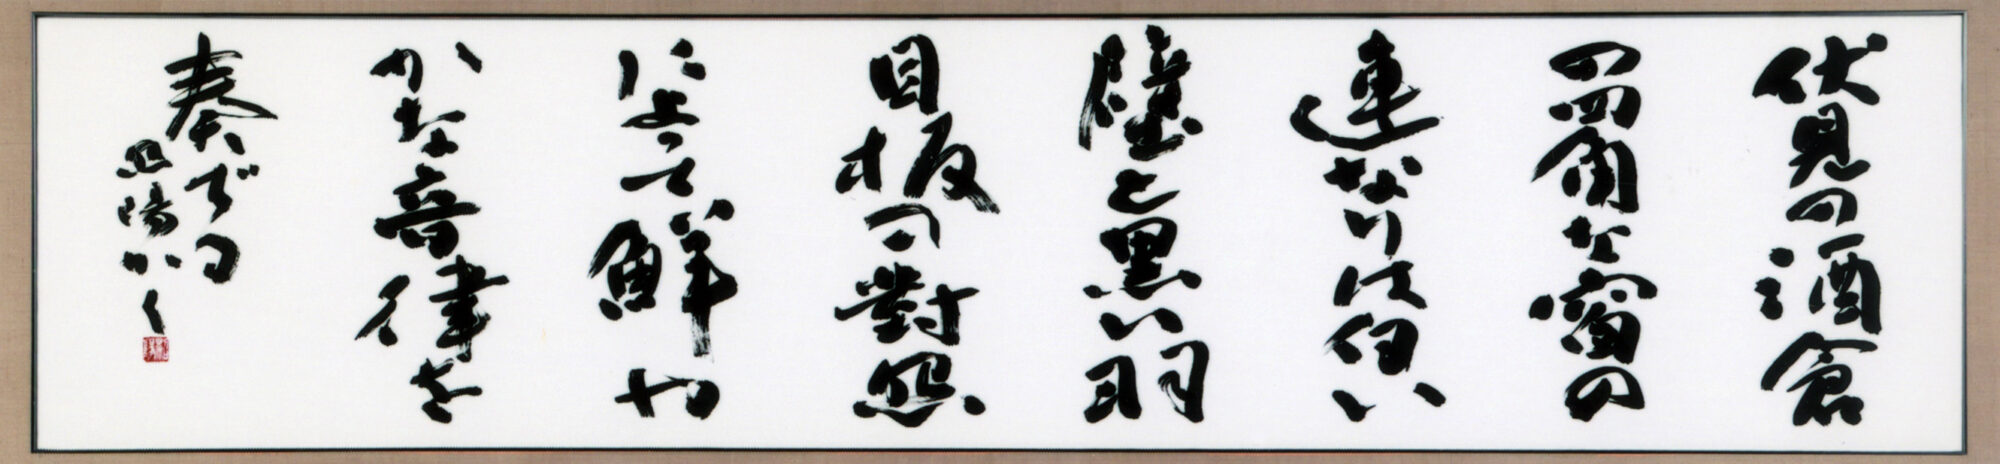 伏見の酒倉
の四角な窗の
連なりは白い
壁と黒い羽
目板の對照
によって鮮や
かな音律を
奏でる
陽かく